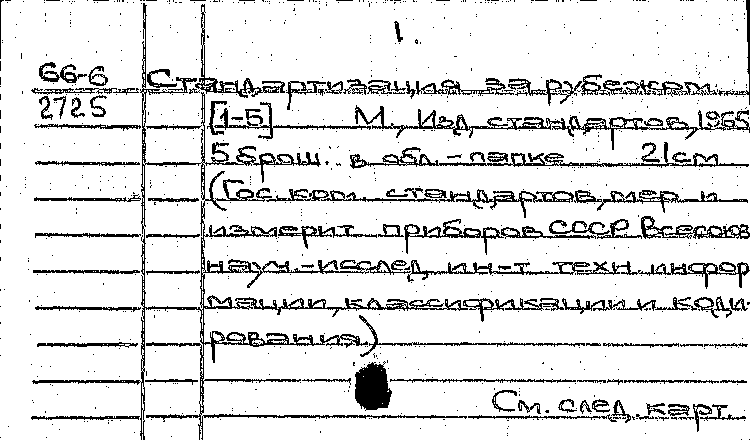 1.
66-6 Стандартизация за рубежом.
2725 [1-5] М., Изд. стандартов, 1965
5 брош. в обл.-папке 21 см
(Гос. ком. стандартов, мер и
измерит. приборов СССР Всесоюз
науч.-исслед. ин-т техн. инфор
мации, классификации и коди-
рования)
См. след. карт.